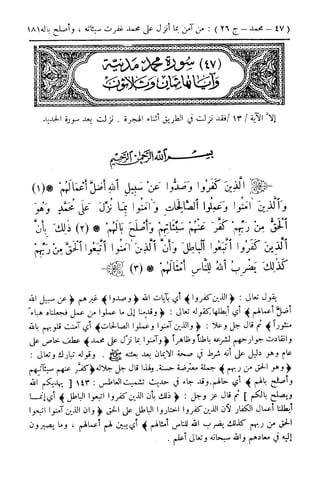 (٤٧ – محمد – ج ٢٦) : من آمن بما أنزل على محمد غفرت سيئاته ، وأصلح باله ١٨١
(٤٧) سورة محمد مدنية
وآياتها ثمان وثلاثون
إلا الآية /١٣/ فقد نزلت في الطريق أثناء الهجرة . نزلت بعد سورة الحديد
بسم الله الرحمن الرحيم
الَّذِينَ كَفَرُوا وَصَدُّوا عَنْ سَبِيلِ اللهِ أَضَلَّ أَعْمَالَهُمْ (١)
وَالَّذِينَ آمَنُوا وَعَمِلُوا الصَّالِحَاتِ وَآمَنُوا بِمَا نُزِّلَ عَلَى مُحَمَّدٍ وَهُوَ
الْحَقُّ مِنْ رَبِّهِمْ كَفَّرَ عَنْهُمْ سَيِّئَاتِهِمْ وَأَصْلَحَ بَالَهُمْ (٢) ذَلِكَ بِأَنَّ
الَّذِينَ كَفَرُوا اتَّبَعُوا الْبَاطِلَ وَأَنَّ الَّذِينَ آمَنُوا اتَّبَعُوا الْحَقَّ مِنْ رَبِّهِمْ
كَذَلِكَ يَضْرِبُ اللهُ لِلنَّاسِ أَمْثَالَهُمْ (٣)
يقول تعالى : ﴿الذين كفروا﴾ أي بآيات الله ﴿وصدوا﴾ غيرهم ﴿عن سبيل الله
أضل أعمالهم﴾ أي أبطلها كقوله تعالى : ﴿وقدمنا إلى ما عملوا من عمل فجعلناه هباء
منثوراً﴾ ثم قال جل وعلا : ﴿والذين آمنوا وعملوا الصالحات﴾ أي آمنت قلوبهم بالله
وانقادت جوارحهم لشرعه باطناً وظاهراً ﴿وآمنوا بما نزل على محمد﴾ عطف خاص على
عام وهو دليل على أنه شرط في صحة الإيمان بعد بعثته ﷺ . وقوله تبارك وتعالى :
﴿وهو الحق من ربهم﴾ جملة معترضة حسنة. ولهذا قال جل جلاله ﴿كفر عنهم سيئاتهم
وأصلح بالهم﴾ أي حالهم. وقد جاء في حديث تشميت العاطس : ١٤٣ [ يهديكم الله
ويصلح بالكم ] ثم قال عز وجل : ﴿ذلك بأن الذين كفروا اتبعوا الباطل﴾ أي إنما
أبطلنا أعمال الكفار لأن الذين كفروا اختاروا الباطل على الحق ﴿وان الذين آمنوا اتبعوا
الحق من ربهم كذلك يضرب الله للناس أمثالهم﴾ أي يبين لهم أعمالهم ، وما يصيرون
إليه في معادهم والله سبحانه وتعالى أعلم .